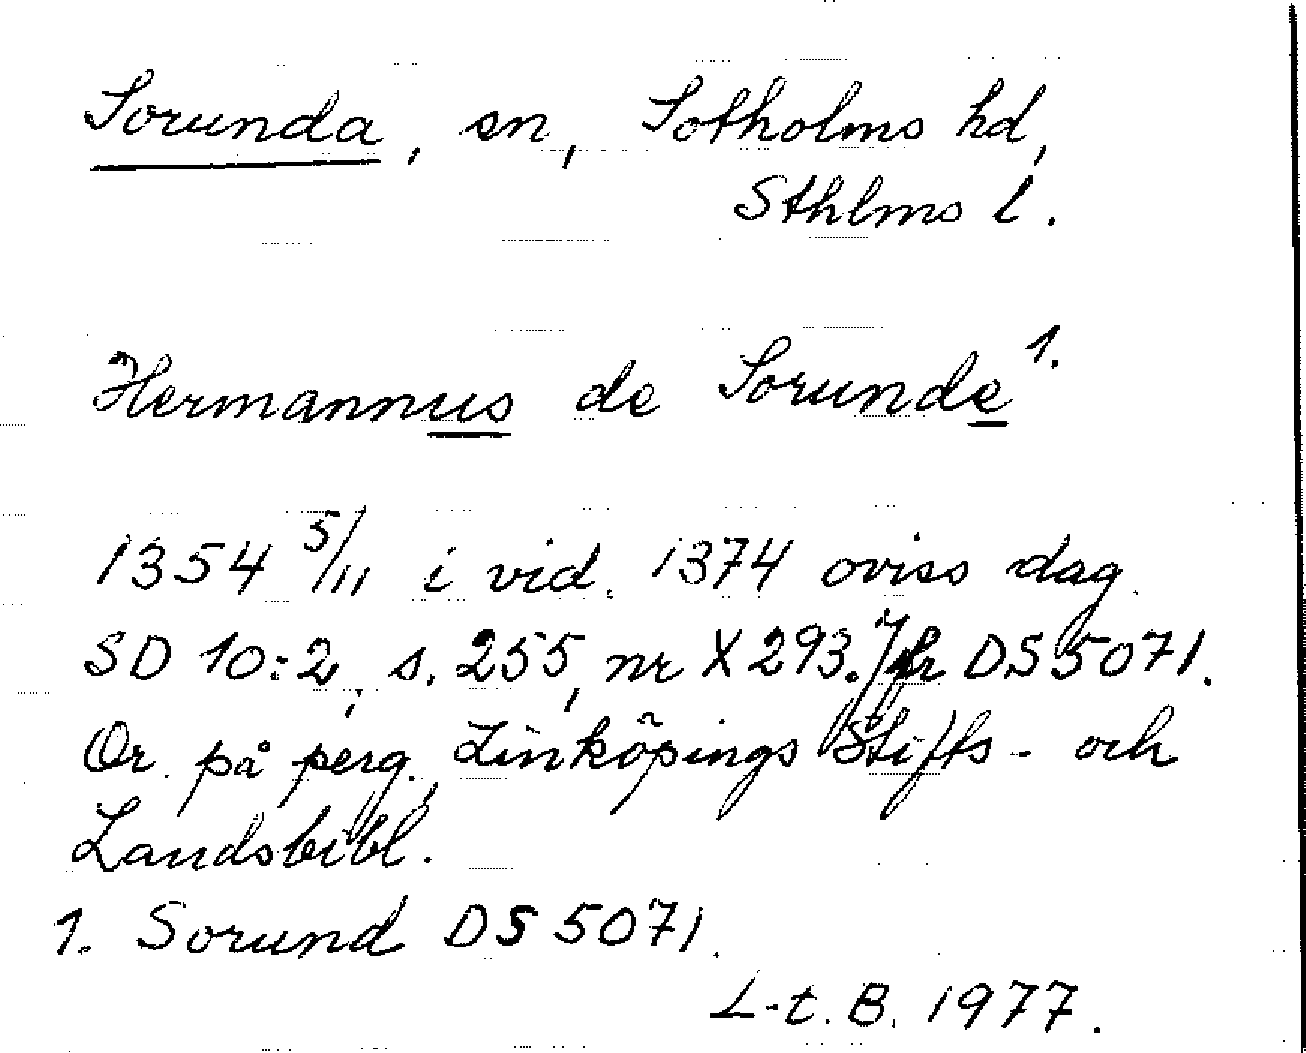 Sorunda, sn, Sotholms hd,
Sthlms l.
Hermannus de Sorunde 1.
1354 5/11 i vid. 1374 oviss dag
SD 10:2, s. 255, nr X 293. Jfr DS 5071.
Or. på perg., Linköpings Stifts- och
Landsbibl.
1. Sorund DS 5071.
L-t. B. 1977.